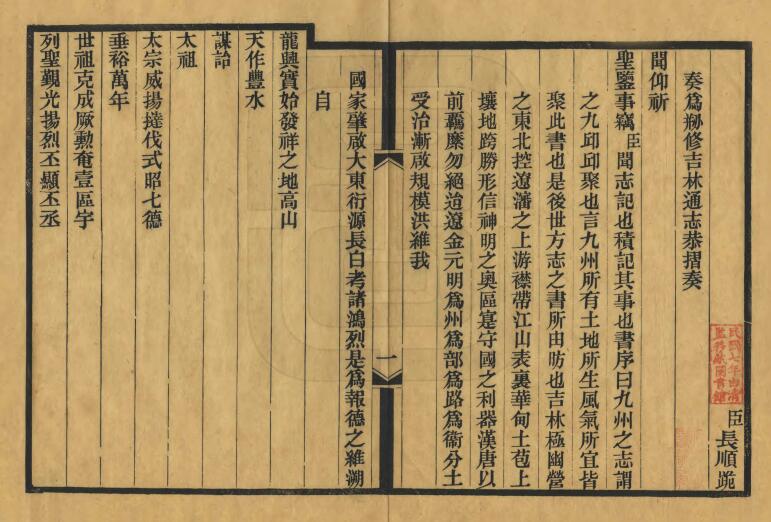 臣長順跪
奏爲刱修吉林通志恭摺奏
聞仰祈
聖鑒事竊臣聞志記也積記其事也書序曰九州之志謂
之九邱邱聚也言九州所有土地所生風氣所宜皆
聚此書也是後世方志之書所由昉也吉林極幽營
之東北控遼瀋之上游襟帶江山表裏華甸土苞上
壤地跨勝形信神明之奧區寔守國之利器漢唐以
前羈縻勿絕迨遼金元明爲州爲部爲路爲衞分土
受治漸啟規模洪維我
一
國家肇啟大東衍源長白考諸鴻烈是爲報德之維溯
自
龍興實始發祥之地高山
天作豐水
謀詒
太祖
太宗威揚撻伐式昭七德
垂裕萬年
世祖克成厥勳奄壹區宇
列聖覲光揚烈丕顯丕丞